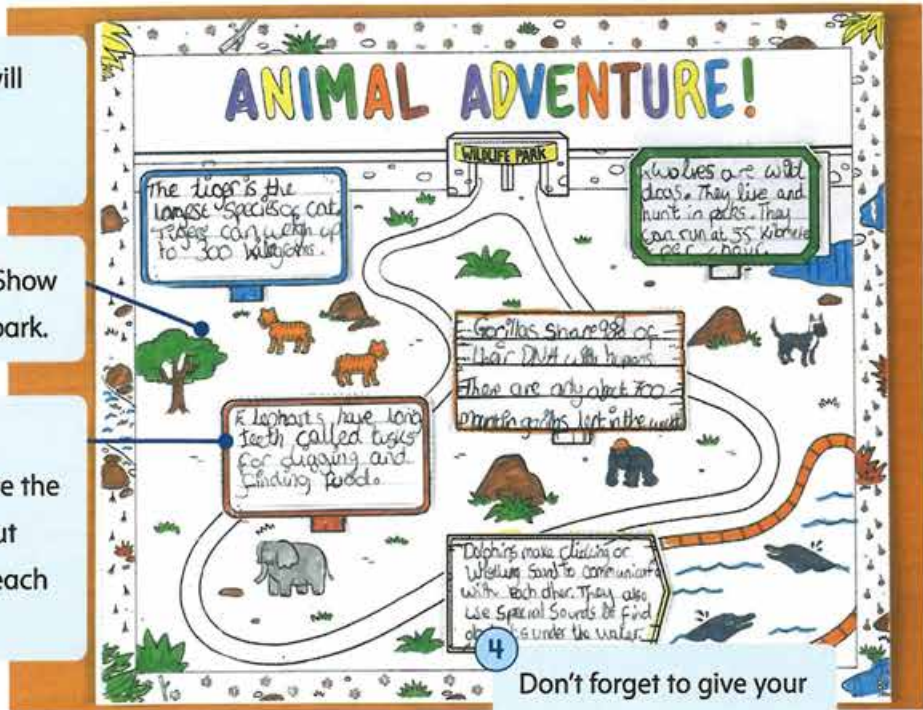 ill
Show
park.
e the
ut
each
ANIMAL ADVENTURE!
WILDLIFE PARK
The tiger is the
largest species of cat.
Tigers can weigh up
to 300 kilograms.
Wolves are wild
dogs. They live and
hunt in packs. They
can run at 55 kilometres
per hour.
Gorillas share 98% of
their DNA with humans.
There are only about 700
mountain gorillas left in the world
Elephants have long
teeth called tusks
for digging and
finding food.
Dolphins make clicking or
whistling sound to communicate
with each other. They also
use special sounds to find
objects under the water.
4
Don't forget to give your